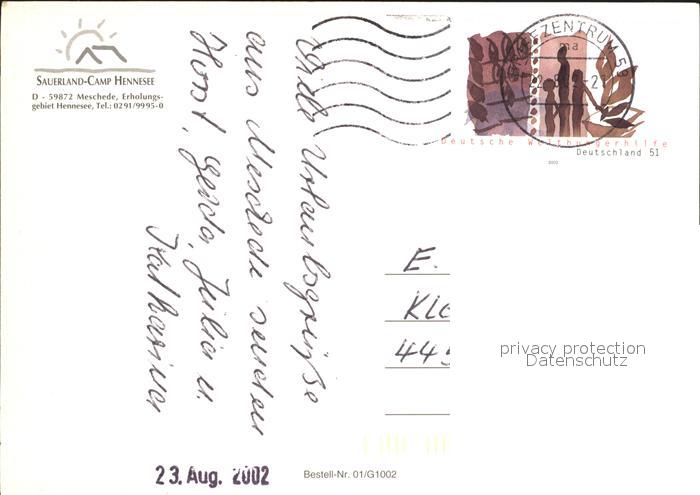 SAUERLAND-CAMP HENNESEE
D - 59872 Meschede, Erholungs-
gebiet Hennesee, Tel.: 0291/9995-0
Viele Urlaubsgrüße
aus Meschede senden
Horst, Gerda, Julia u.
Katharina
EZENTRUM 59
ma
Deutsche Welthungerhilfe
Deutschland 51
2002
E.
Klo
445
privacy protection
Datenschutz
23. Aug. 2002
Bestell-Nr. 01/G1002